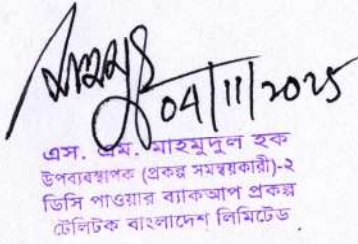 04/11/2025
এস. এম. মাহমুদুল হক
উপব্যবস্থাপক (প্রকল্প সমন্বয়কারী)-২
ডিসি পাওয়ার ব্যাকআপ প্রকল্প
টেলিটক বাংলাদেশ লিমিটেড